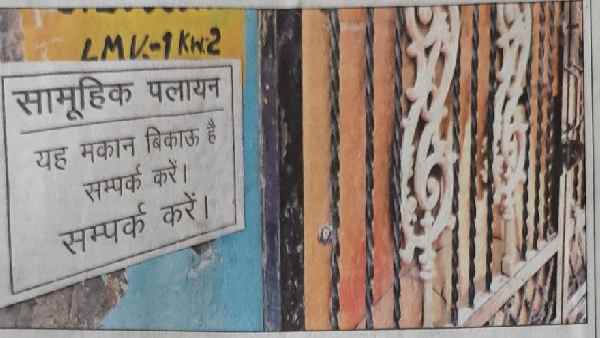 LMV-1 KW-2
सामूहिक पलायन
यह मकान बिकाऊ है
सम्पर्क करें।
सम्पर्क करें।